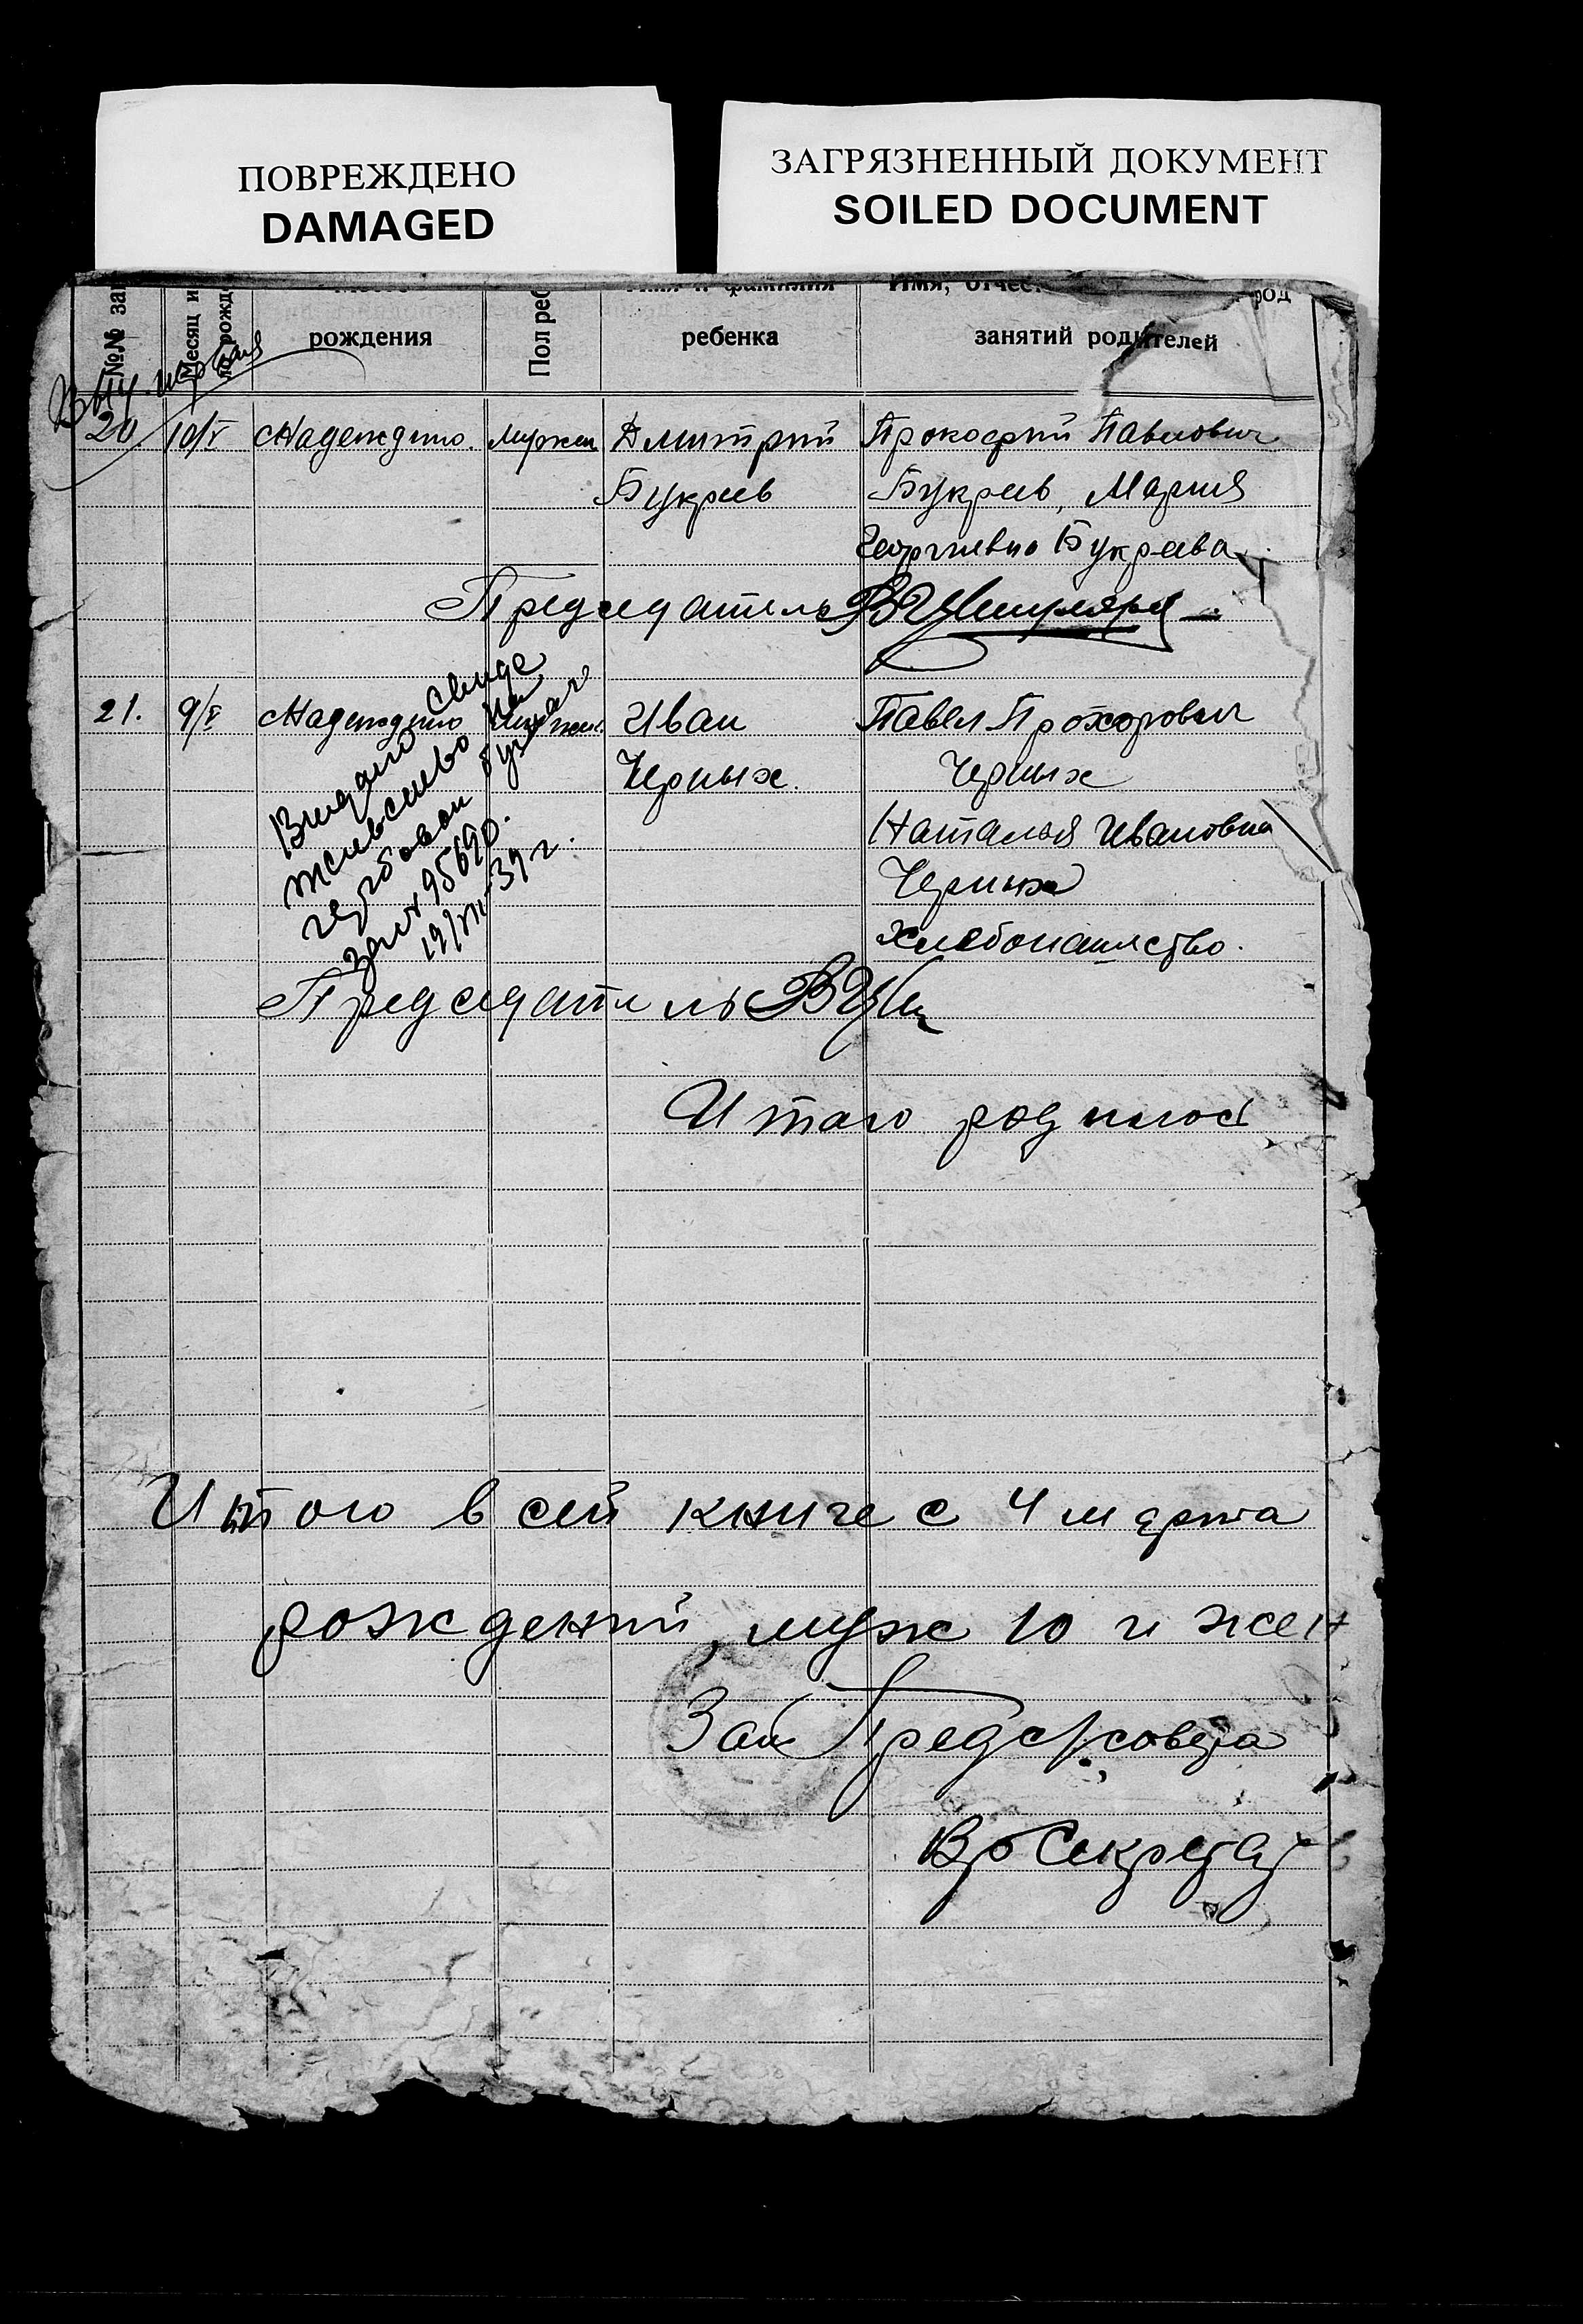 ПОВРЕЖДЕНО
DAMAGED
ЗАГРЯЗНЕННЫЙ ДОКУМЕНТ
SOILED DOCUMENT
№№ зап
Месяц и
рожд
рождения
Пол реб
Имя и фамилия
ребенка
Имя, отчест род
занятий родителей
20 10/V Надеждино. мужск Дмитрий Прокофий Павлович
Букреев Букреев, Мария
Георгиевна Букреева
Председатель
21. 9/V Надеждино Иван Павел Прохорович
Черных. Черных
Наталья Ивановна
Черных
хлебопашество.
Выдано свиде
тельство на
гербовой бумаге
за № 95690.
19/VII-39 г.
Председатель
Итого родилось
Итого в сей книге с 4 марта
рождений, муж 10 и жен
Зам Пред с/совета
Вр Секретар